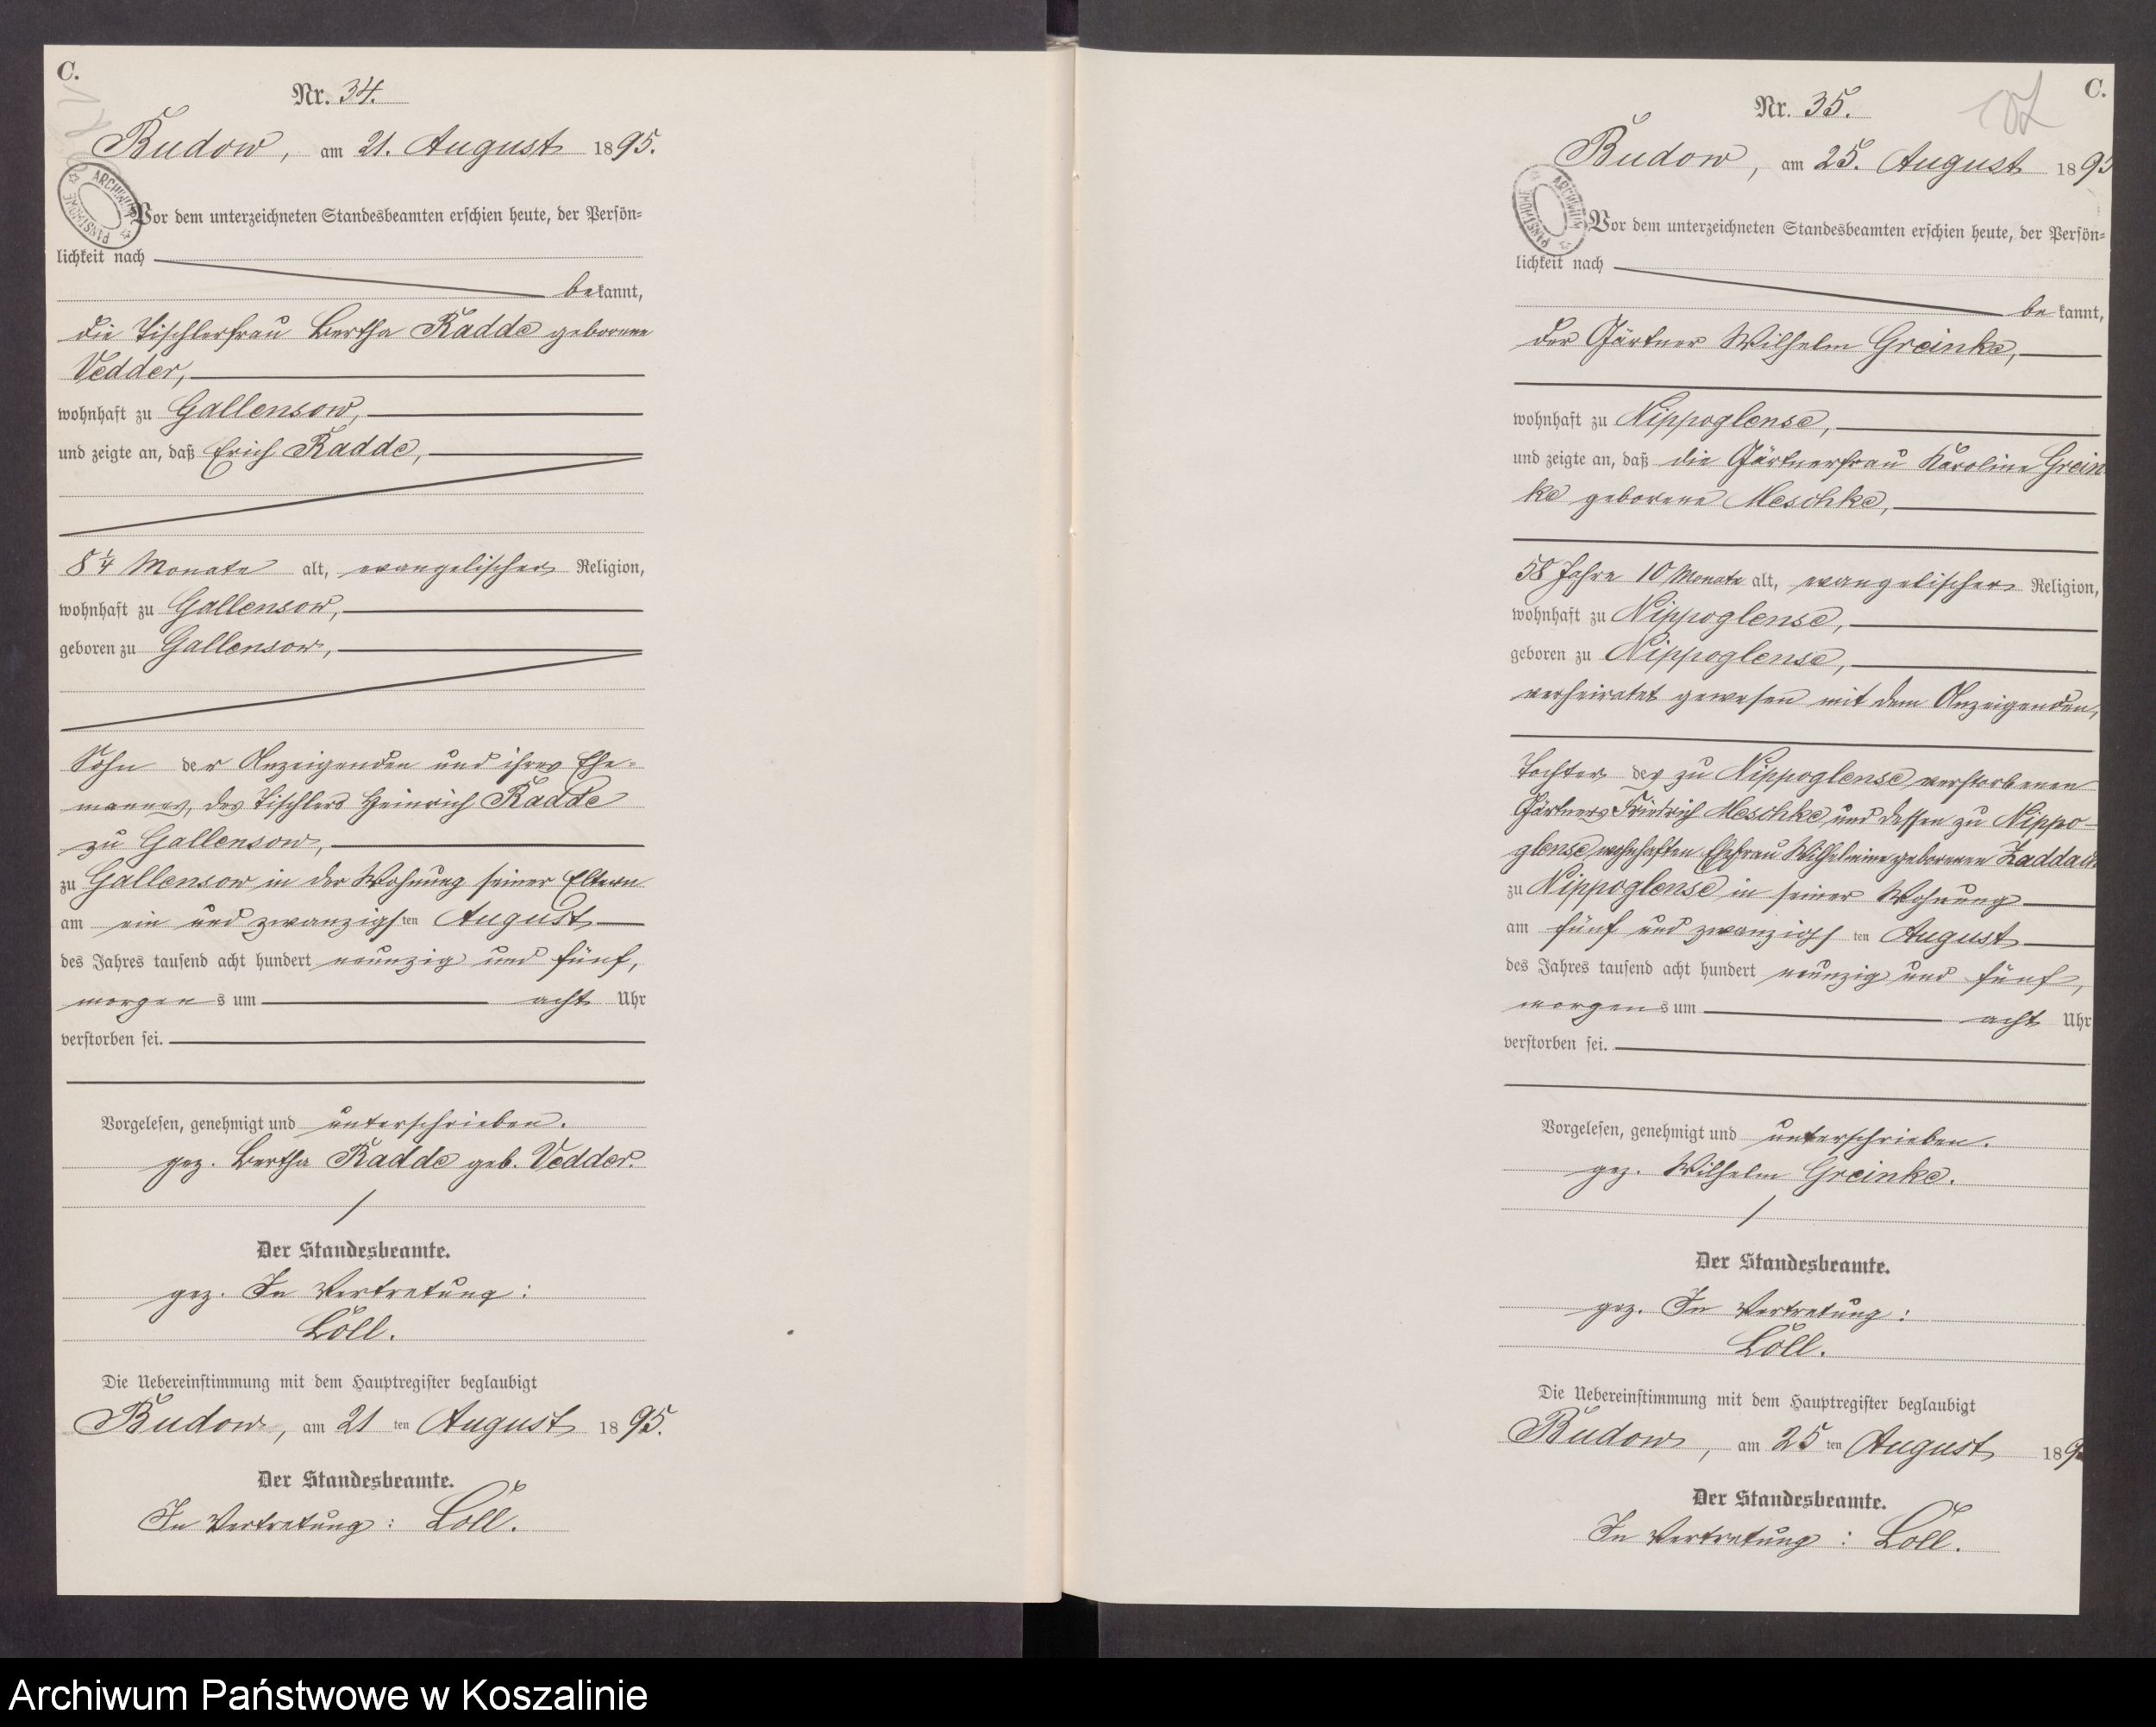 C.
Nr. 34.
Budow, am 21. August 1895.
ARCHIWUM PAŃSTWOWE
Vor dem unterzeichneten Standesbeamten erschien heute, der Persön=
lichkeit nach
bekannt,
die Tischlerfrau Bertha Radde geborene
Vedder,
wohnhaft zu Gallensow,
und zeigte an, daß Erich Radde,
8 1/4 Monate alt, evangelischer Religion,
wohnhaft zu Gallensow,
geboren zu Gallensow,
Sohn der Anzeigenden und ihres Ehe=
mannes, des Tischlers Heinrich Radde
zu Gallensow,
zu Gallensow in der Wohnung seiner Eltern
am ein und zwanzigsten August
des Jahres tausend acht hundert neunzig und fünf,
morgens um acht Uhr
verstorben sei.
Vorgelesen, genehmigt und unterschrieben.
gez. Bertha Radde geb. Vedder.
Der Standesbeamte.
gez. In Vertretung:
Löll.
Die Uebereinstimmung mit dem Hauptregister beglaubigt
Budow, am 21 ten August 1895.
Der Standesbeamte.
In Vertretung: Löll.
C.
Nr. 35.
Budow, am 25. August 189
ARCHIWUM PAŃSTWOWE
Vor dem unterzeichneten Standesbeamten erschien heute, der Persön=
lichkeit nach
bekannt,
der Gärtner Wilhelm Greinke,
wohnhaft zu Nippoglense,
und zeigte an, daß die Gärtnerfrau Karoline Grein
ke geborene Meschke,
58 Jahre 10 Monate alt, evangelischer Religion,
wohnhaft zu Nippoglense,
geboren zu Nippoglense,
verheiratet gewesen mit dem Anzeigenden,
Tochter des zu Nippoglense verstorbenen
Gärtners Friedrich Meschke und dessen zu Nippo-
glense wohnhaften Ehefrau Wilhelmine geborenen
zu Nippoglense in seiner Wohnung
am fünf und zwanzigsten August
des Jahres tausend acht hundert neunzig und fünf,
morgens um acht Uhr
verstorben sei.
Vorgelesen, genehmigt und unterschrieben.
gez. Wilhelm Greinke.
Der Standesbeamte.
gez. In Vertretung:
Löll.
Die Uebereinstimmung mit dem Hauptregister beglaubigt
Budow, am 25 ten August 189
Der Standesbeamte.
In Vertretung: Löll.
Archiwum Państwowe w Koszalinie